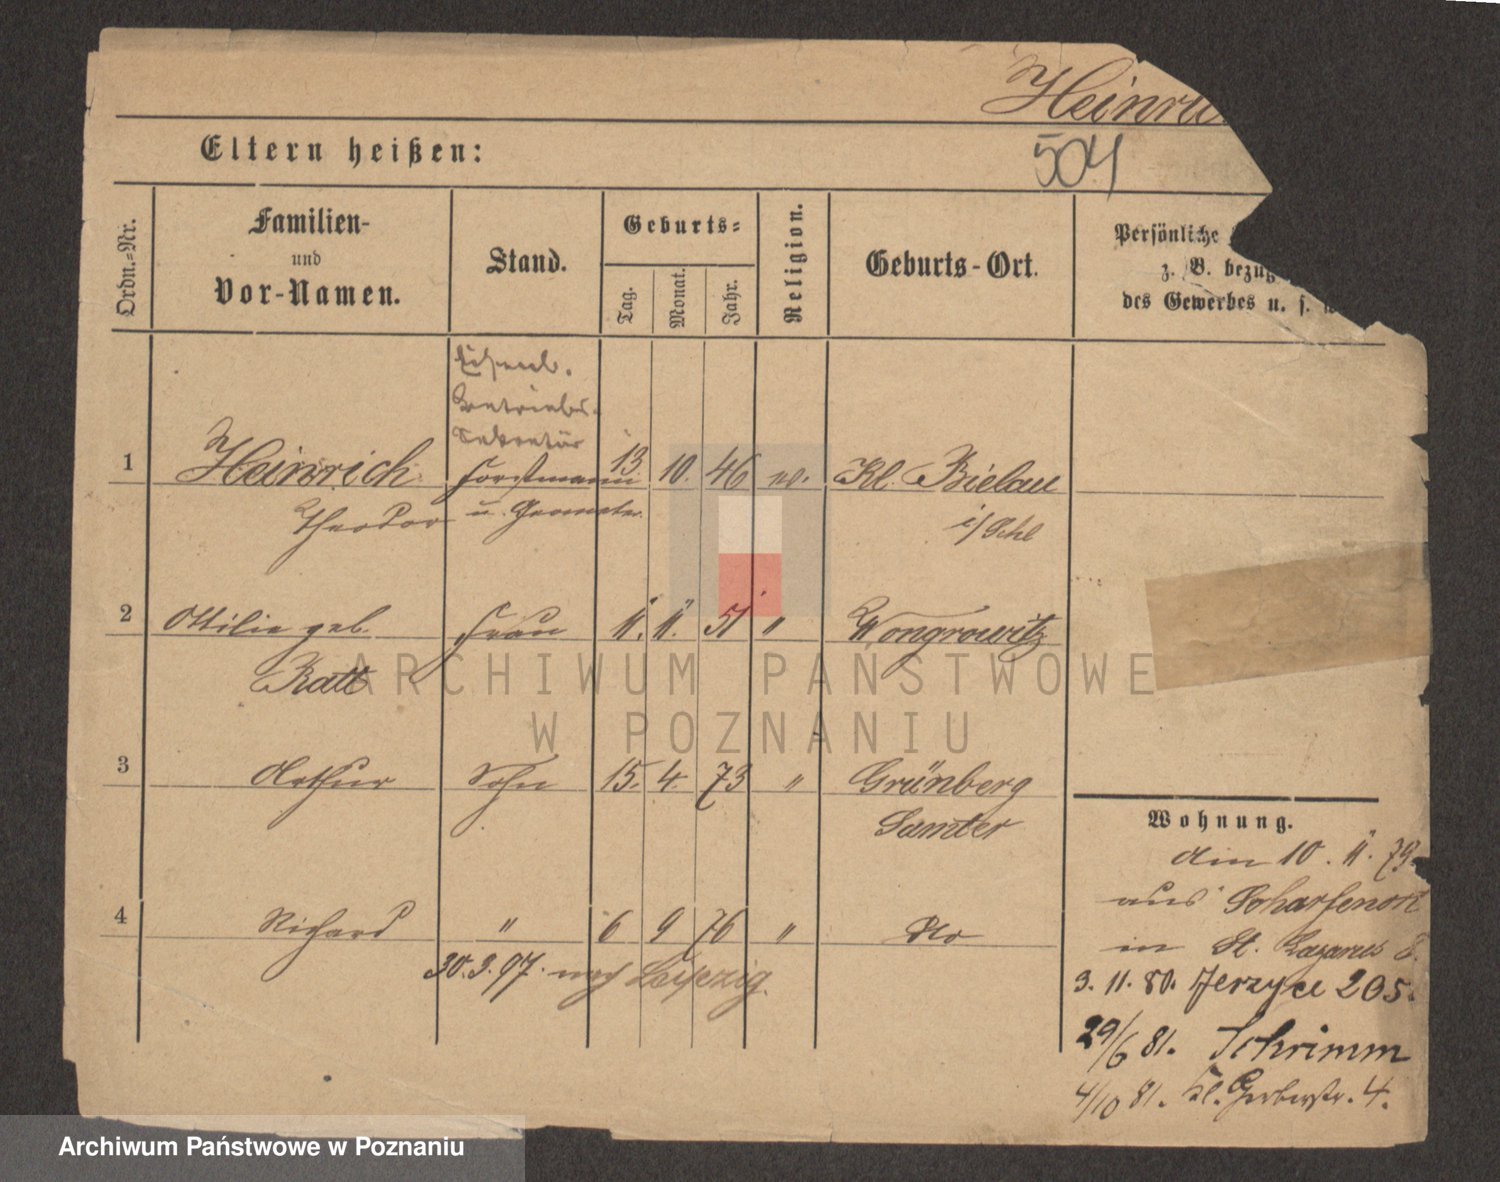 Heinri
504
Eltern heißen:
Ordn.-Nr.
Familien-
und
Vor-Namen.
Stand.
Geburts-
Tag.
Monat.
Jahr.
Religion.
Geburts-Ort.
Persönliche
z. B. bezüg
des Gewerbes u. s. w
Eisenb.
Betriebs-
Sekretär
1 Heinrich Forstmann 13. 10. 46 ev. Kl. Bielau
Theodor u. Geometer. i/Schl
2 Ottilie geb. Frau 11. 11. 51 " Wongrowitz
Ratt
3 Arthur Sohn 15. 4. 73 " Grünberg
Samter
4 Richard " 6 9 76 " Do
30.3.97. nach Leipzig.
Wohnung.
den 10. 11. 79
aus Scharfenort
in St. Lazarus 8.
3. 11. 80. Jerzyce 205.
29/6 81. Schrimm
4/10 81. Kl. Gerberstr. 4.
ARCHIWUM PAŃSTWOWE
W POZNANIU
Archiwum Państwowe w Poznaniu